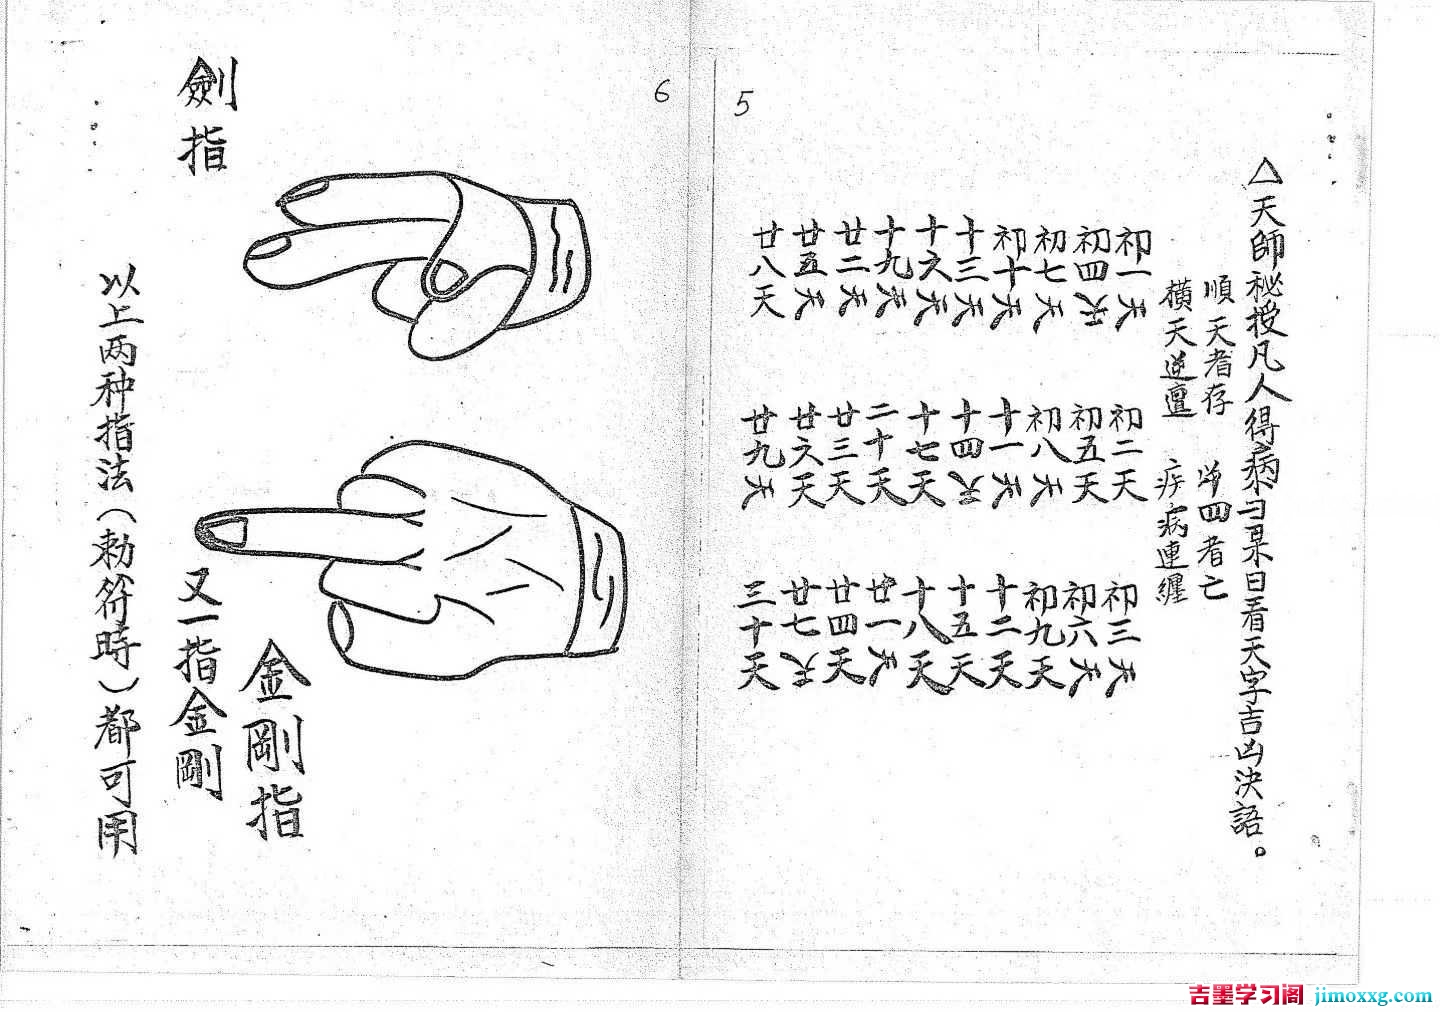 5
△天師秘授凡人得病某日看天字吉凶決語。
順天者存 四者亡
橫天逆 疾病連纏
初一天 初二天 初三天
初四天 初五天 初六天
初七天 初八天 初九天
初十天 十一天 十二天
十三天 十四天 十五天
十六天 十七天 十八天
十九天 二十天 廿一天
廿二天 廿三天 廿四天
廿五天 廿六天 廿七天
廿八天 廿九天 三十天
6
劍指
金剛指
又一指金剛
以上两种指法(勅符時)都可用
吉墨学习阁 jimoxxg.com